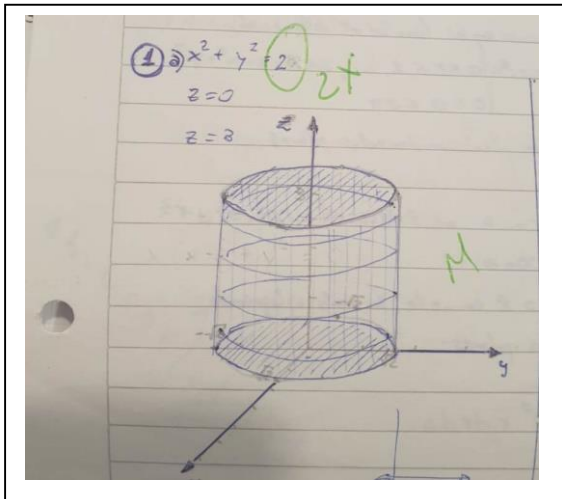 1 a) x² + y² = 2
2x
z = 0
z = 3
z
M
y